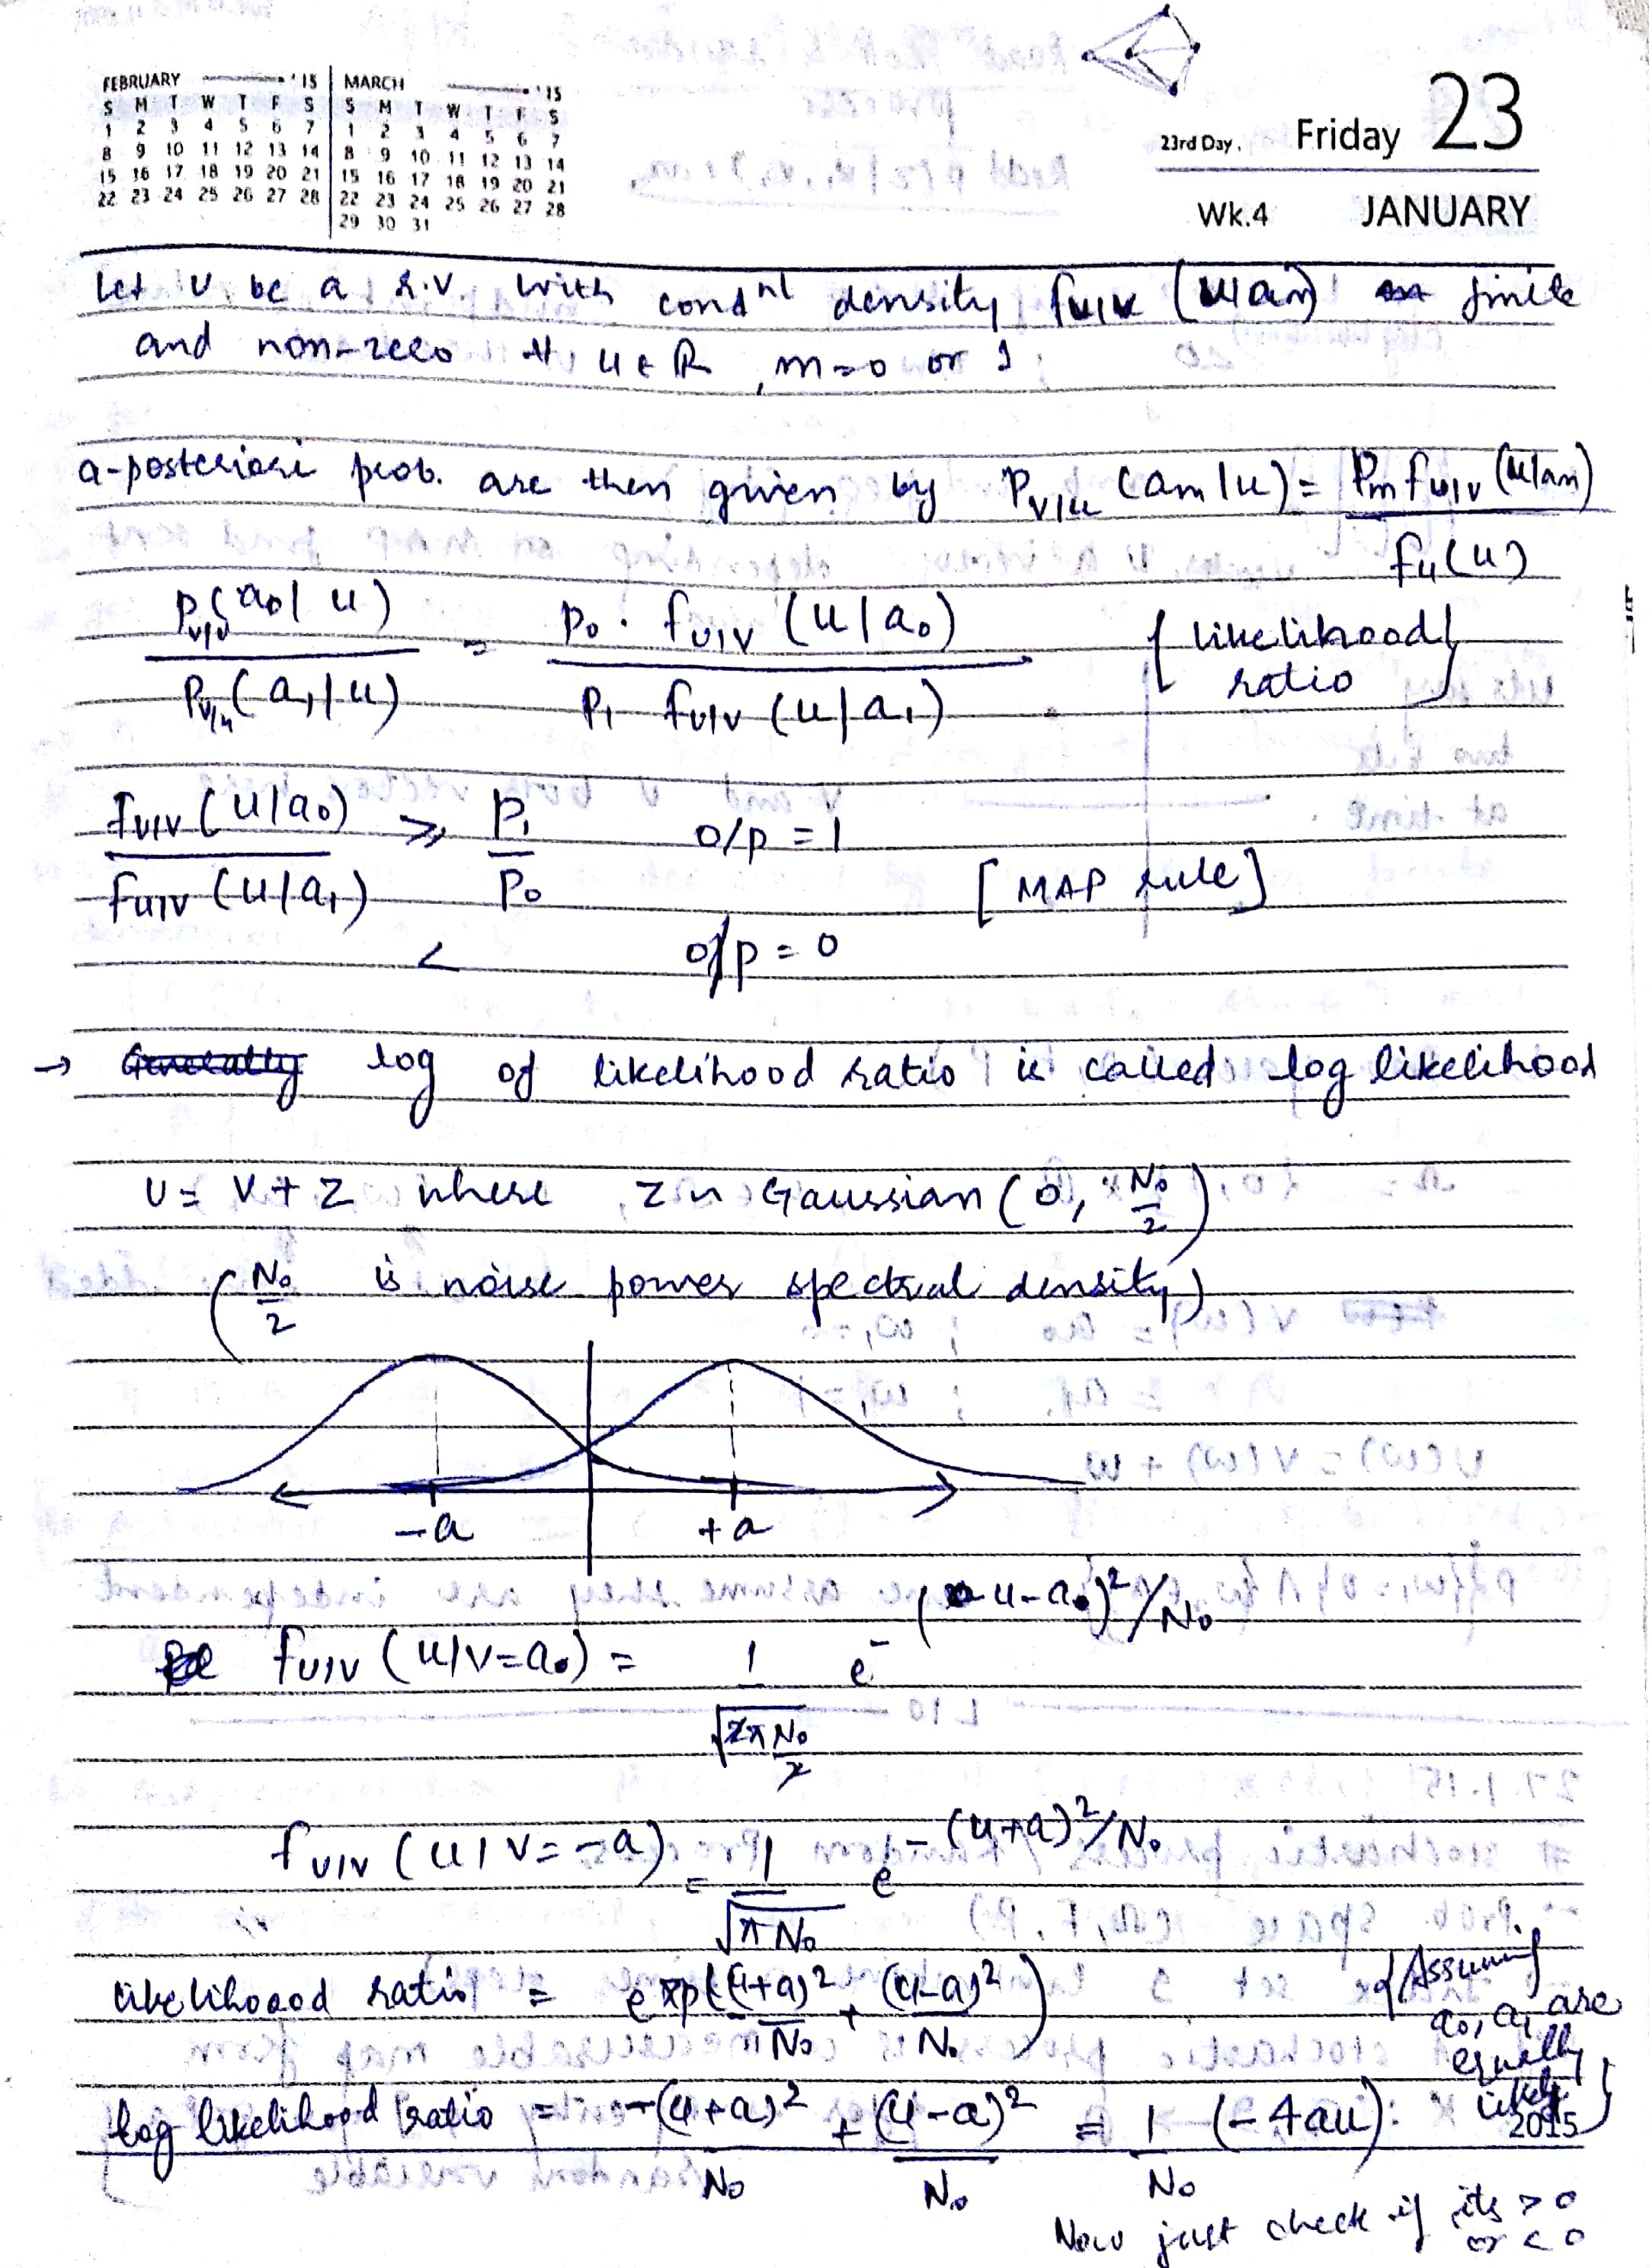 FEBRUARY '15 MARCH '15
S M T W T F S S M T W T F S
1 2 3 4 5 6 7 1 2 3 4 5 6 7
8 9 10 11 12 13 14 8 9 10 11 12 13 14
15 16 17 18 19 20 21 15 16 17 18 19 20 21
22 23 24 25 26 27 28 22 23 24 25 26 27 28
29 30 31
23rd Day. Friday 23
Wk.4 JANUARY
Let U be a r.v. with cond^nl density f_{U|V} (u|a_m) finite
and non-zero ∀ u ∈ R, m=0 or 1
a-posteriori prob. are then given by P_{V|U} (a_m|u) = P_m f_{U|V} (u|a_m) / f_U(u)
P_{V|U}(a_0|u) / P_{V|U}(a_1|u) = P_0 . f_{U|V} (u|a_0) / P_1 f_{U|V} (u|a_1) { likelihood ratio }
f_{U|V} (u|a_0) / f_{U|V} (u|a_1) ≥ P_1 / P_0 o/p = 1
[MAP rule]
< o/p = 0
→ Generally log of likelihood ratio is called log likelihood
U = V + Z where Z ~ Gaussian (0, N_0/2)
(N_0/2 is noise power spectral density)
-a +a
f_{U|V} (u|V=a_0) = 1/√(2π N_0/2) e^{-(u-a_0)²/N_0}
f_{U|V} (u|V=-a) = 1/√(π N_0) e^{-(u+a)²/N_0}
likelihoood ratio = exp(-(u+a)²/N_0 + (u-a)²/N_0) { Assuming
a_0, a_1 are
equally
likely }
log likelihood ratio = -(u+a)²/N_0 + (u-a)²/N_0 = 1/N_0 (-4au)
2015
Now just check if its > 0
or < 0